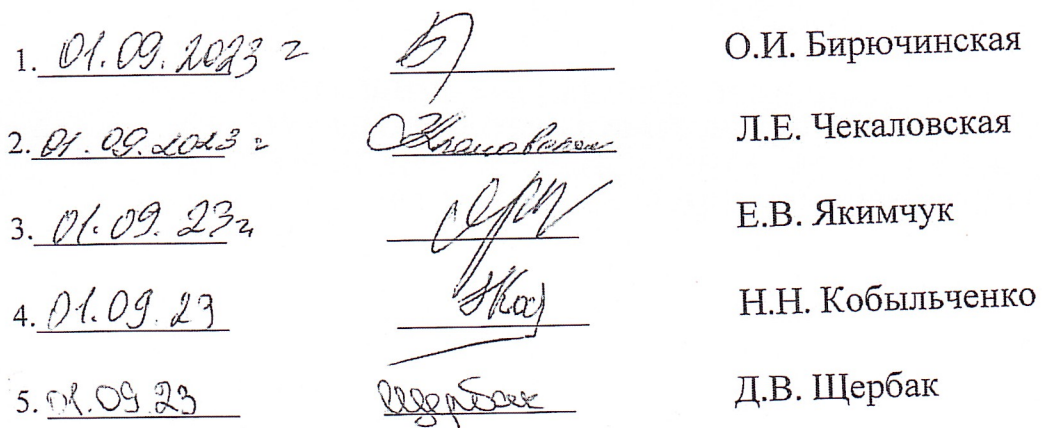 1. 01.09.2023 г О.И. Бирючинская
2. 01.09.2023 г Л.Е. Чекаловская
3. 01.09.23г Е.В. Якимчук
4. 01.09.23 Н.Н. Кобыльченко
5. 01.09.23 Щербак Д.В. Щербак